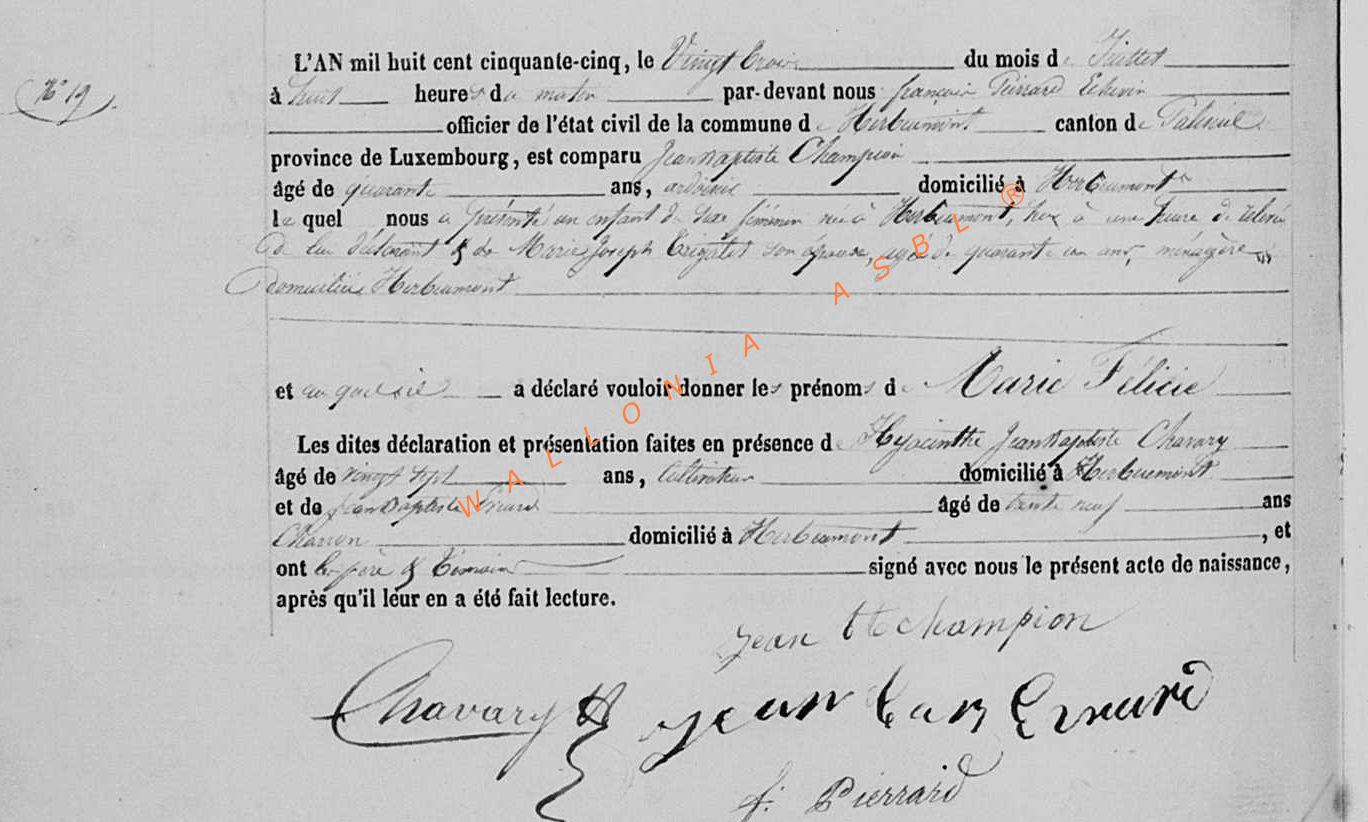 N° 19
L'AN mil huit cent cinquante-cinq, le Vingt trois du mois de Juillet
à huit heures du matin par-devant nous françois Pierrard Echevin
officier de l'état civil de la commune d'Herbeumont canton de Paliseul
province de Luxembourg, est comparu Jean Baptiste Champion
âgé de quarante ans, ardoisier domicilié à Herbeumont
le quel nous a présenté un enfant du sexe féminin née à Herbeumont, hier à une heure de relevée
de lui déclarant & de Marie Joseph son épouse, agée de quarante un ans, ménagère
domiciliés Herbeumont
et auquel il a déclaré vouloir donner les prénoms de Marie Félicie
Les dites déclaration et présentation faites en présence de Hyacinthe Jean Baptiste Chavary
âgé de vingt sept ans, Cultivateur domicilié à Herbeumont
et de Jean Baptiste Evrard âgé de trente neuf ans
Charron domicilié à Herbeumont, et
ont les père & témoins signé avec nous le présent acte de naissance,
après qu'il leur en a été fait lecture.
jean Bte champion
Chavary H jean bap Evrard
f. Pierrard
WALLONIA ASBL ®